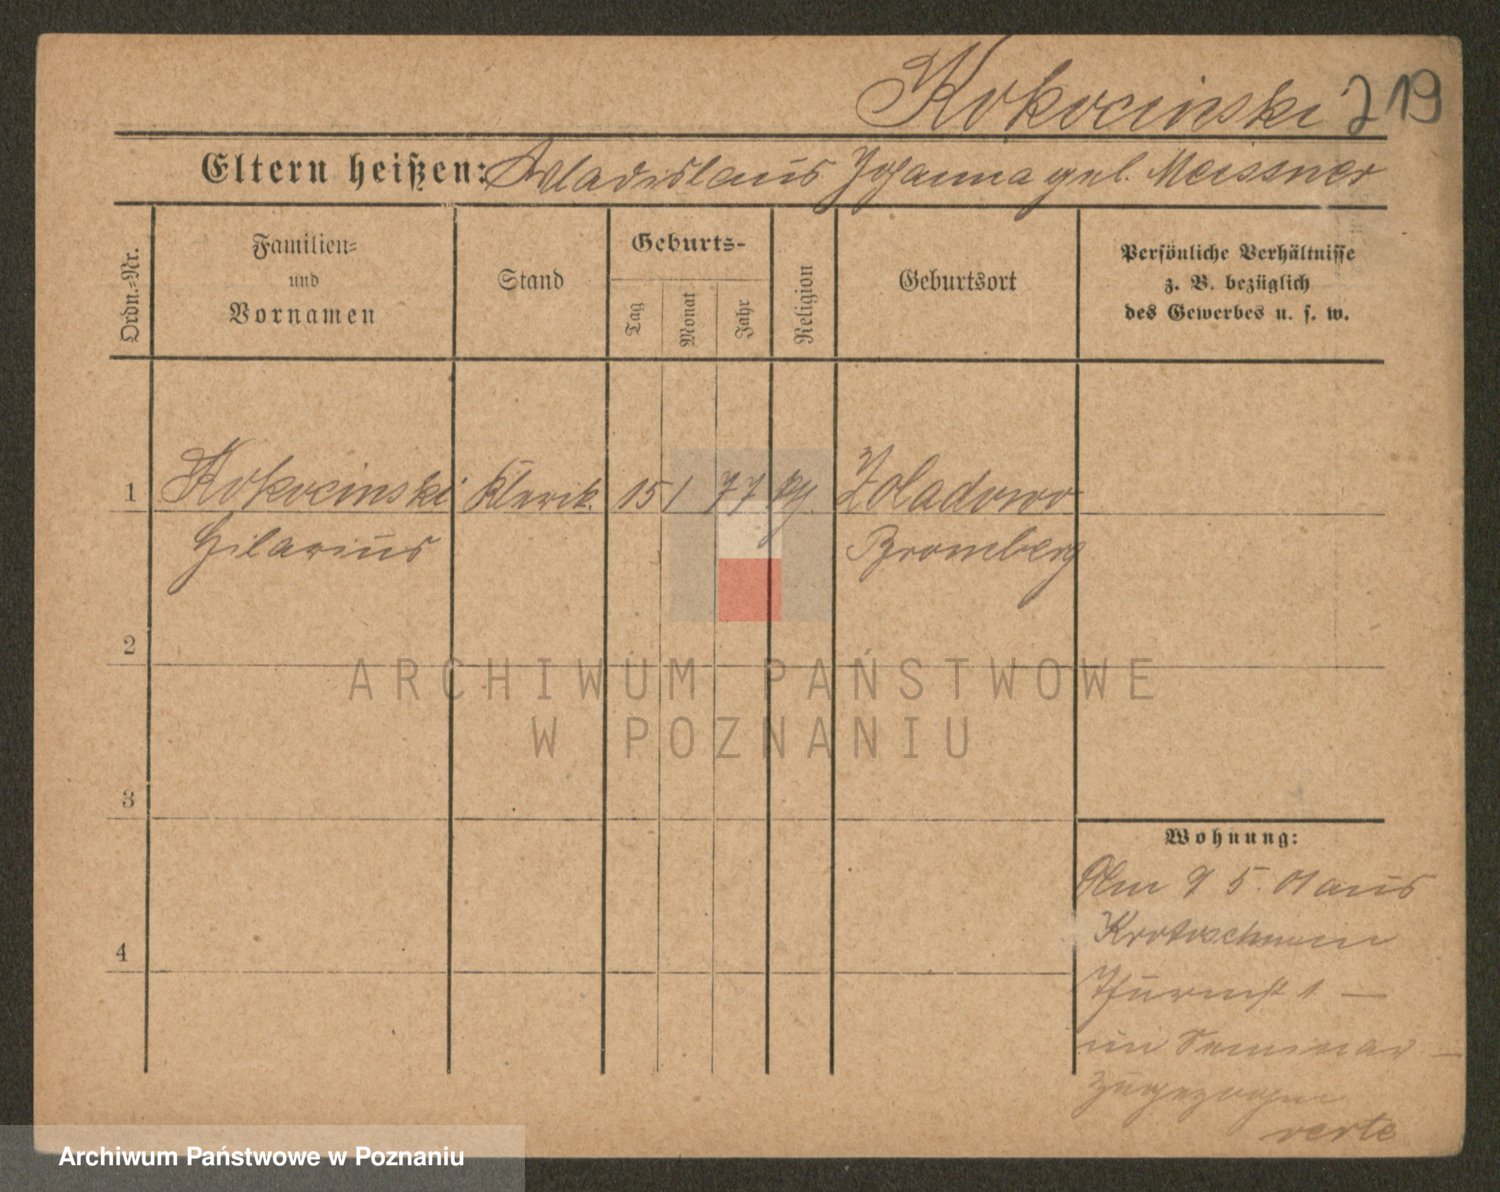 Kokocinski 219
Eltern heißen: Wladislaus Johanna geb. Meissner
Ordn.-Nr.
Familien-
und
Vornamen
Stand
Geburts-
Tag
Monat
Jahr
Religion
Geburtsort
Persönliche Verhältnisse
z. B. bezüglich
des Gewerbes u. s. w.
1 Kokocinski Klerik. 15 1 77 Zoladowo
Hilarius Bromberg
2
ARCHIWUM PAŃSTWOWE
W POZNANIU
3
Wohnung:
5. 01 aus
Krotoschin
1 —
im Seminar —
zugezogen
verte
4
Archiwum Państwowe w Poznaniu